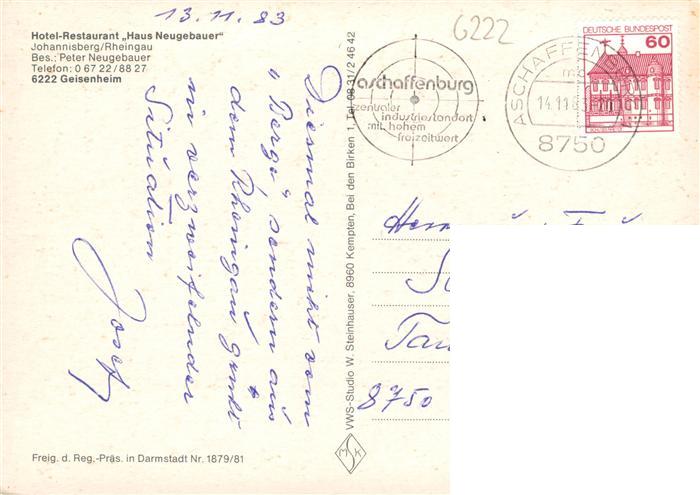 13.11.83
6222
Hotel-Restaurant „Haus Neugebauer"
Johannisberg/Rheingau
Bes.: Peter Neugebauer
Telefon: 0 67 22/88 27
6222 Geisenheim
Diesmal nicht vom
„Berge", sondern aus
dem Rheingau grüßt
in verzweifelnder
Situation
Josef
Freig. d. Reg.-Präs. in Darmstadt Nr. 1879/81
VWS-Studio W. Steinhauser, 8960 Kempten, Bei den Birken 1, Tel. 08 31/2 46 42
MSK
aschaffenburg
zentraler
industriestandort
mit hohem
freizeitwert
ASCHAFFEN
14.11.8
8750
DEUTSCHE BUNDESPOST
60
8750